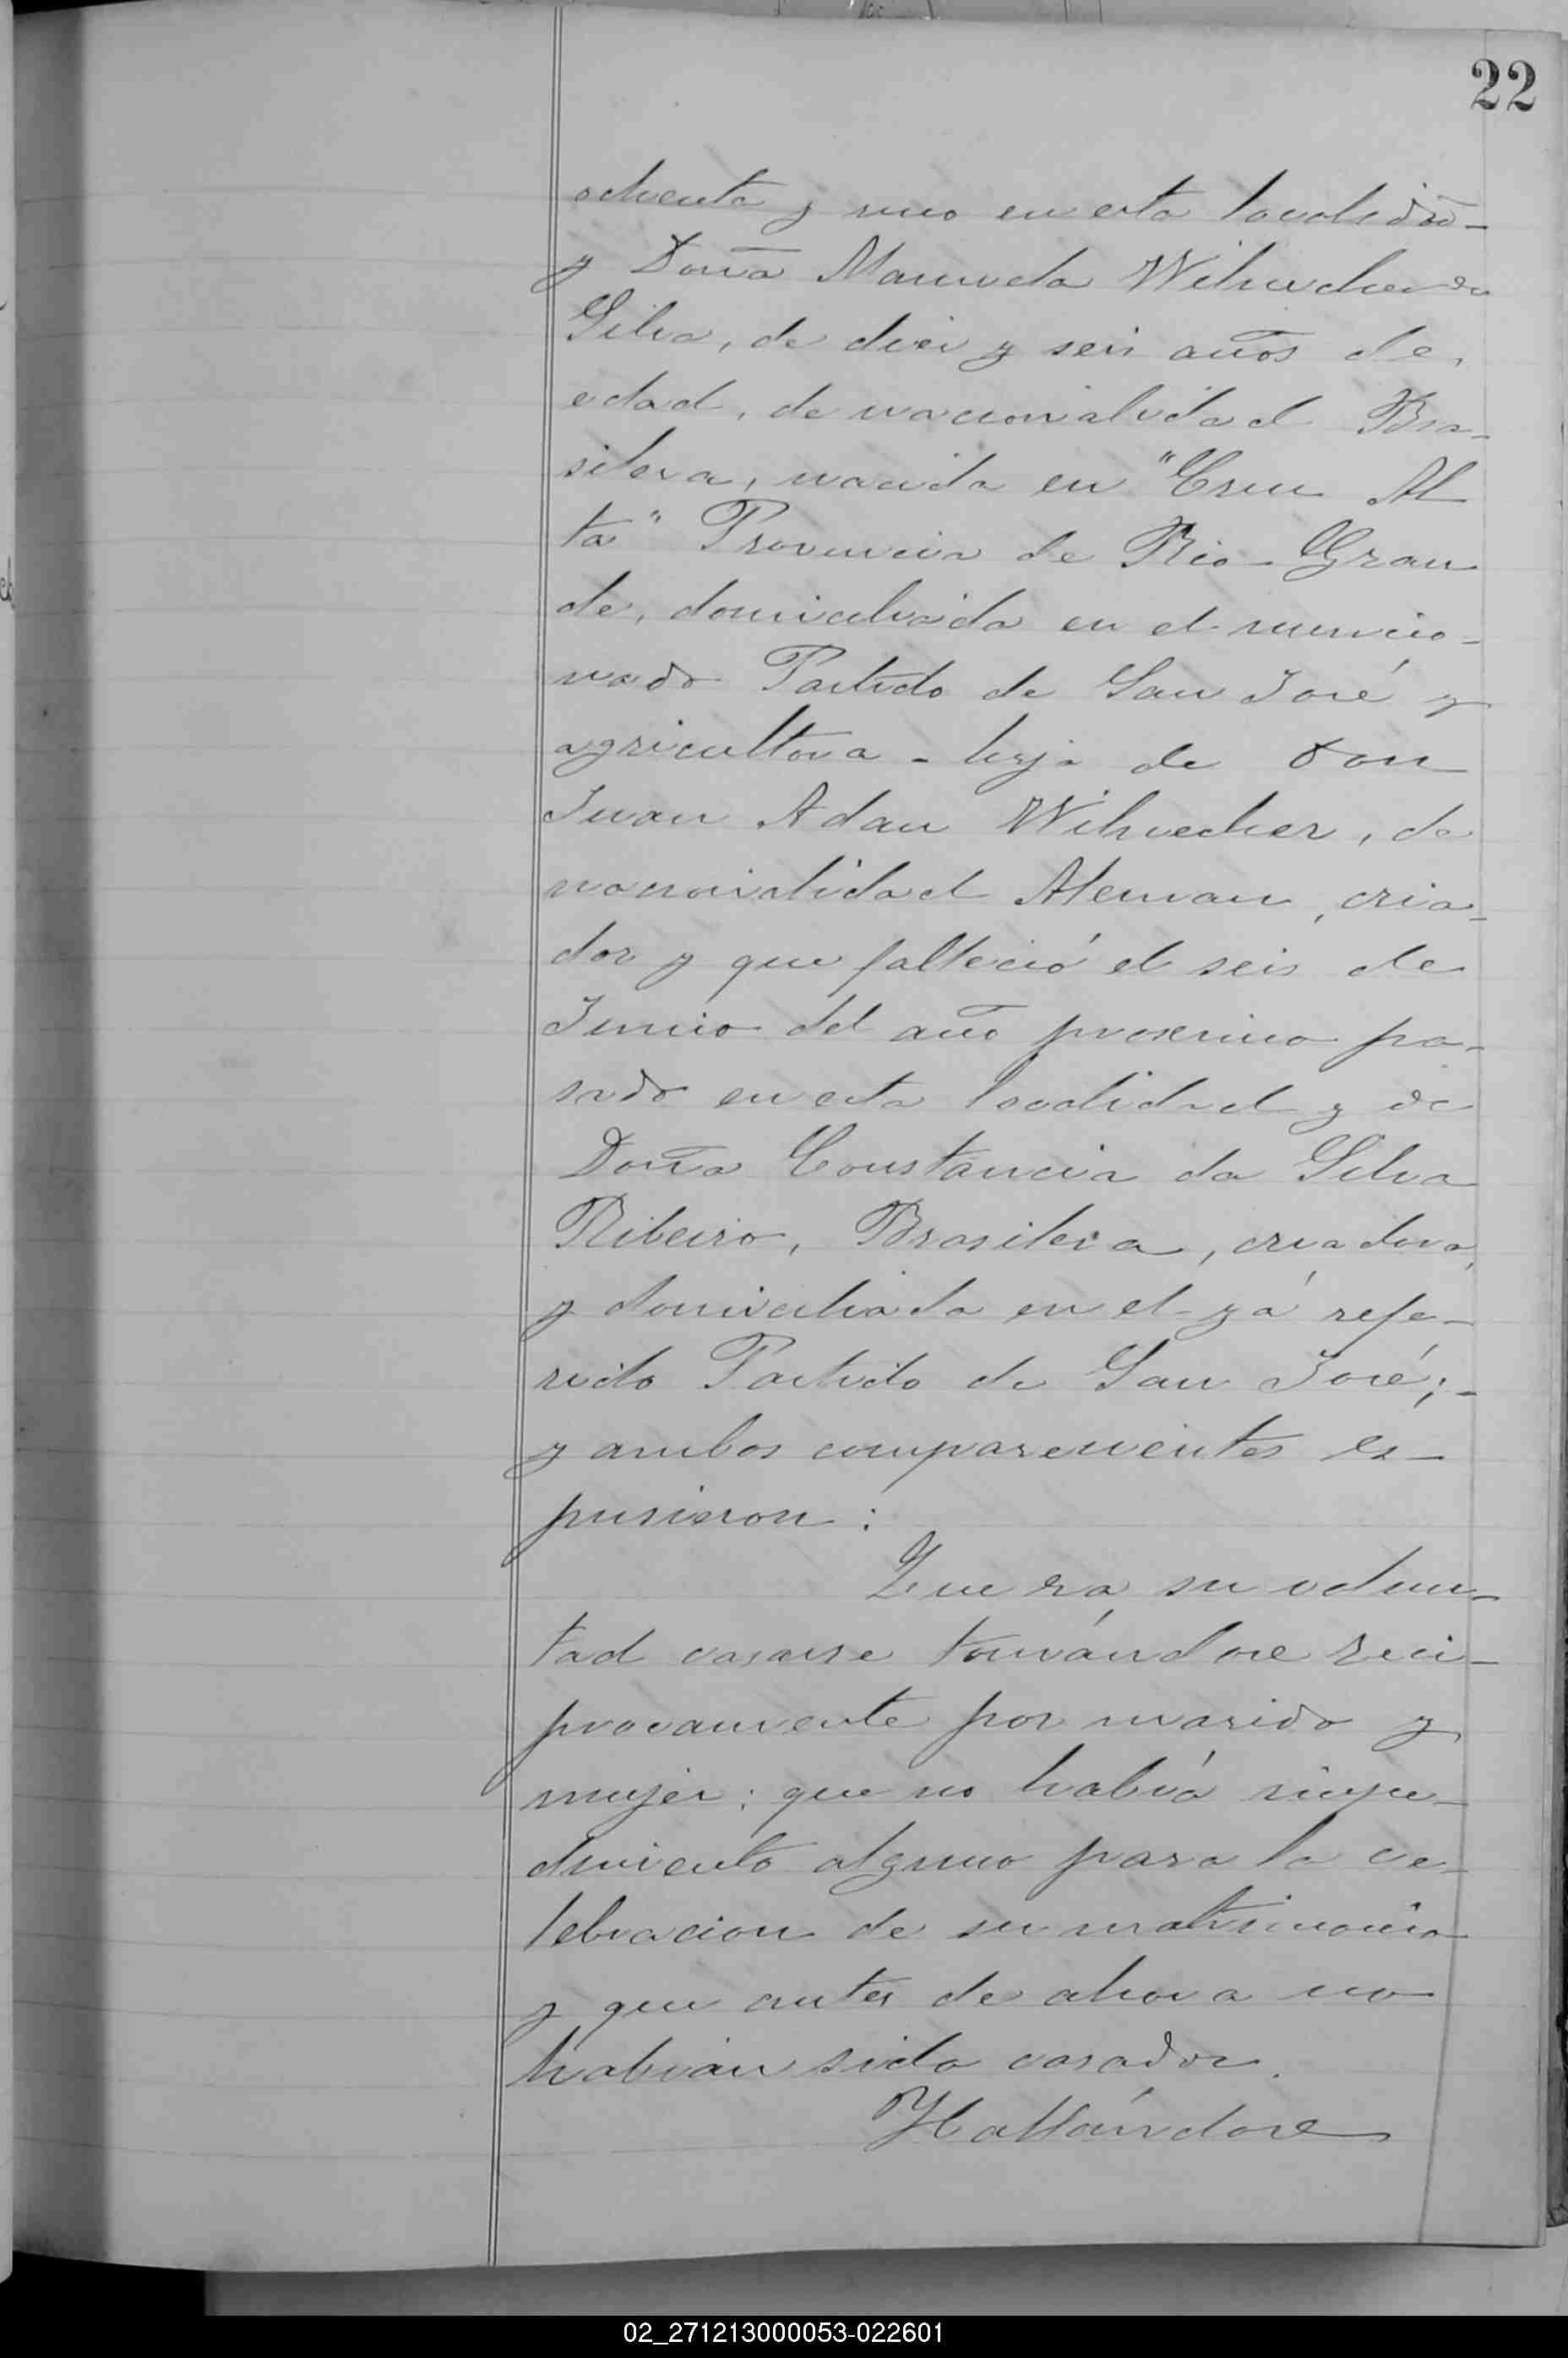 22
ochenta y uno en esta localidad-
y Doña Manuela Wihvecher da
Silva, de diez y seis años de
edad, de nacionalidad Bra-
silera, nacida en "Cruz Al
ta" Provincia de Rio-Gran
de, domiciliada en el mencio-
nado Partido de San José y
agricultora - hija de don
Juan Adan Wihvecher, de
nacionalidad Aleman, cria-
dor y que falleció el seis de
Junio del año proximo pa-
sado en esta localidad y de
Doña Constancia da Silva
Ribeiro, Brasilera, criadora,
y domiciliada en el yá refe-
rido Partido de San José;-
y ambos comparecientes es-
pusieron:
Que era su volun-
tad casarse tomándose reci-
procamente por marido y
mujer: que no habiá impe-
dimiento alguno para la ce-
lebracion de su matrimonio
y que antes de ahora no
habian sido casados.
Hallándose
02_271213000053-022601